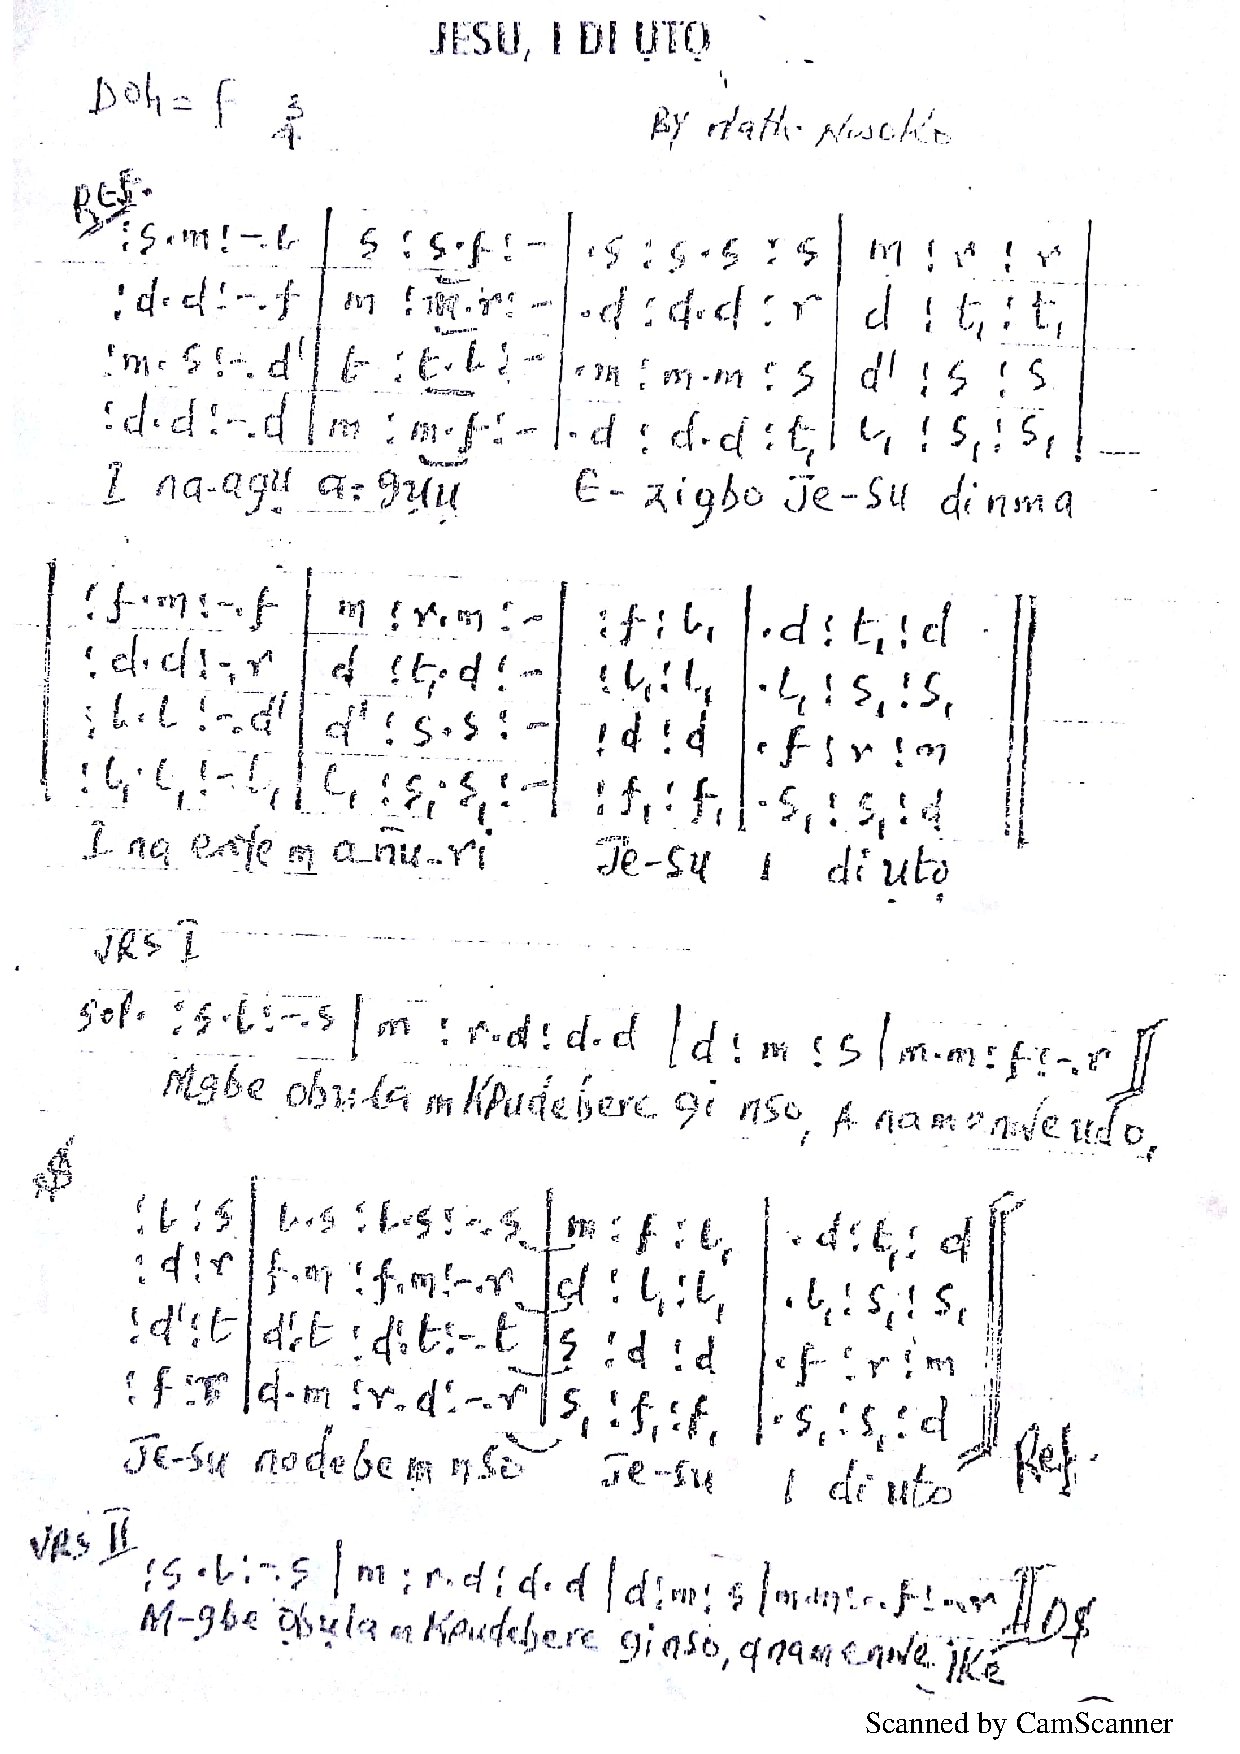 JESU, I DI ỤTỌ
DOh = f 3/4
BY Nath.
REf.
:s.m:-.l | s :s.f:- | .s :s.s :s | m :r :r |
:d.d:-.f | m :m.r:- | .d :d.d :r | d :t₁ :t₁
:m.s:-.d' | t :t.l:- | .m :m.m :s | d' :s :s
:d.d:-.d | m :m.f:- | .d :d.d :t₁ | l₁ :s₁ :s₁
I na-agụ a-gụụ E-zigbo Je-su dinma
| :f.m:-.f | m :r.m:- | :f :l₁ | .d :t₁ :d ||
:d.d:-.r | d :t₁.d:- | :l₁ :l₁ | .l₁ :s₁ :s₁
:l.l:-.d' | d' :s.s:- | :d :d | .f :r :m
:l₁.l₁:-.l₁ | l₁ :s₁.s₁:- | :f₁ :f₁ | .s₁ :s₁ :d
I na enye m añu-ri Je-su I di ụtọ
VRS I
sol. :s.l:-.s | m :r.d :d.d | d :m :s | m.m :f:-.r ||
Mgbe obụla m Kpudebere gi nso, A nam enwe udo,
:l :s | l.s :l.s:-.s | m :f :l₁ | .d :t₁ :d ||
:d :r | f.m :f.m:-.r | d :l₁ :l₁ | .l₁ :s₁ :s₁
:d' :t | d'.t :d'.t:-.t | s :d :d | .f :r :m
:f :r | d.m :r.d:-.r | s₁ :f₁ :f₁ | .s₁ :s₁ :d
Je-su nodebe m nso Je-su I di uto Ref.
VRS II
:s.l:-.s | m :r.d :d.d | d :m :s | m.m :f:-.r || D$
M-gbe ọbụla m Kpudebere gi nso, a nam enwe ike
Scanned by CamScanner